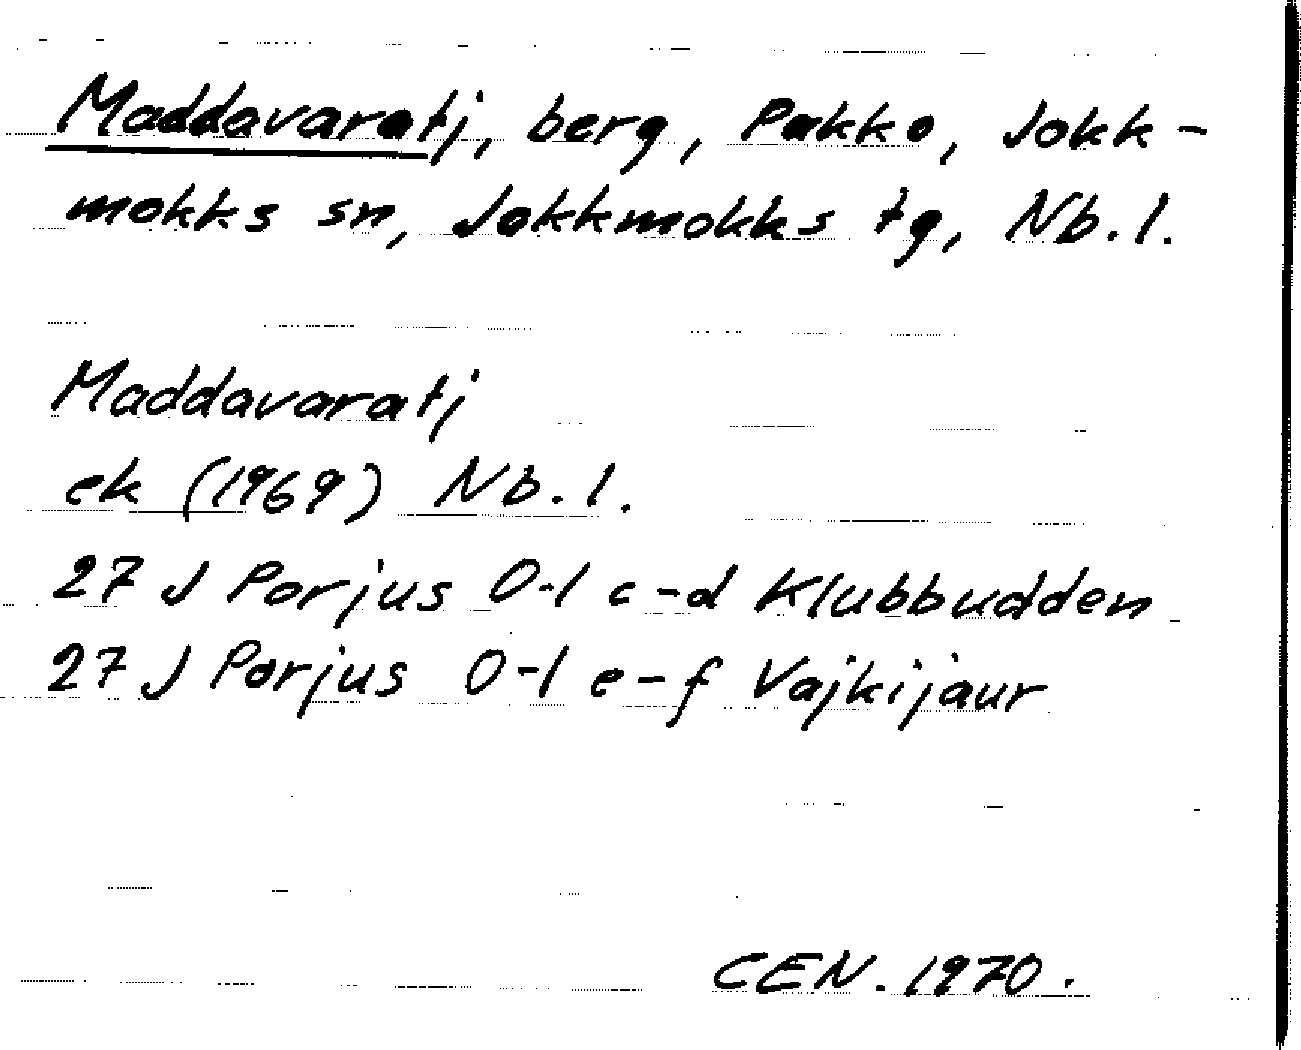 Maddavaratj, berg, Pakko, Jokk-
mokks sn, Jokkmokks tg, Nb. l.
Maddavaratj
ek (1969) Nb. l.
27 J Porjus 0-1 c-d Klubbudden
27 J Porjus 0-1 e-f Vajkijaur
CEN. 1970.